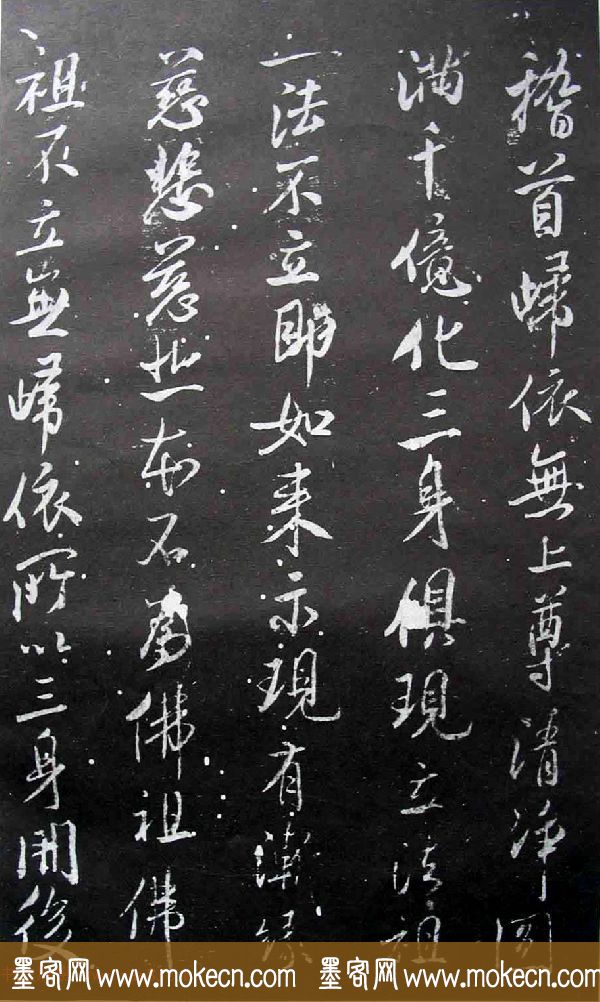 稽首歸依無上尊清净圓
滿千億化三身俱現立法祖
一法不立即如来示現有漸緣
慈悲慈本不為佛祖佛
祖不立無歸依所以三身開後
墨客网 www.mokecn.com 墨客网 www.mokecn.com